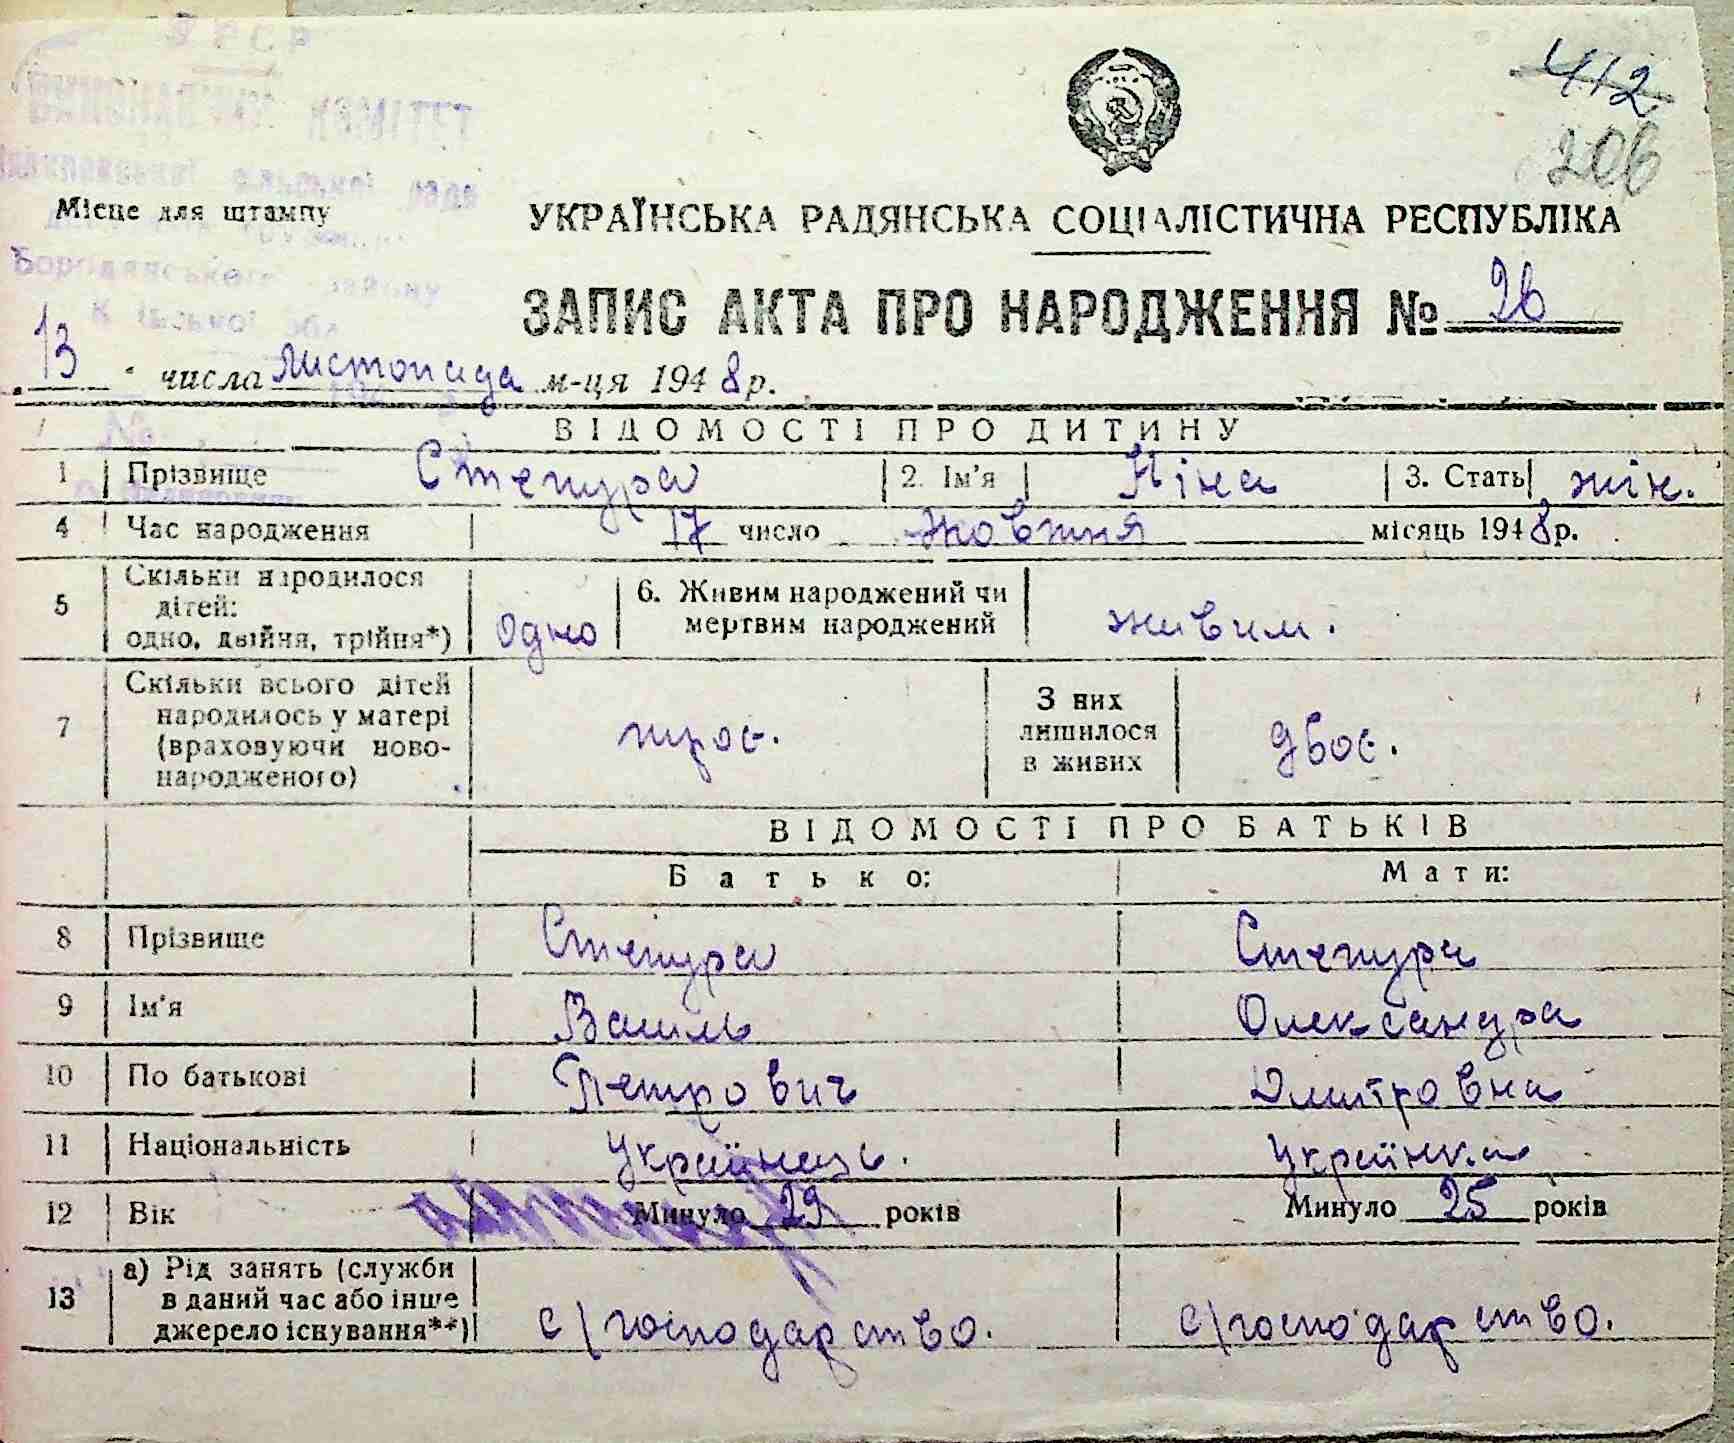 УРСР
ВИКОНАВЧИЙ КОМІТЕТ
сільської ради
Місце для штампу
Бородянського району
Київської обл.
412
206
УКРАЇНСЬКА РАДЯНСЬКА СОЦІАЛІСТИЧНА РЕСПУБЛІКА
ЗАПИС АКТА ПРО НАРОДЖЕННЯ № 26
13 числа Листопада м-ця 1948 р.
№
ВІДОМОСТІ ПРО ДИТИНУ
1 Прізвище Степура 2. Ім'я Ніна 3. Стать жін.
4 Час народження 17 число жовтня місяць 1948 р.
5 Скільки народилося дітей: одно, двійня, трійня*) одно 6. Живим народжений чи мертвим народжений живим.
7 Скільки всього дітей народилось у матері (враховуючи новонародженого) троє. З них лишилося в живих двоє.
ВІДОМОСТІ ПРО БАТЬКІВ
Батько: Мати:
8 Прізвище Степура Степура
9 Ім'я Василь Олександра
10 По батькові Петрович Дмитровна
11 Національність Українець. Українка
12 Вік Минуло 29 років Минуло 25 років
13 а) Рід занять (служби в даний час або інше джерело існування**) с/господарство. с/господарство.